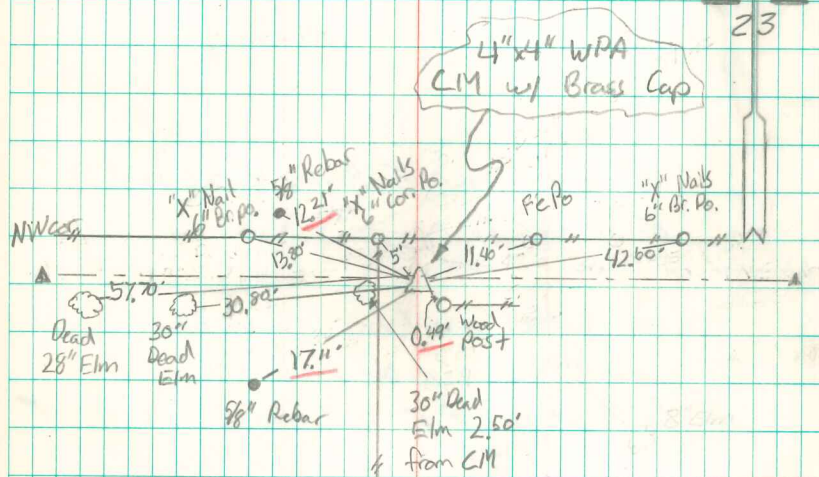 23
4"x4" WPA
CM w/ Brass Cap
5/8" Rebar
12.21'
"X" Nail
6" Br. Po.
"X" Nails
6" Cor. Po.
Fc Po
"X" Nails
6" Br. Po.
NW cor
13.80'
5'
11.40'
42.60'
57.70'
30.80'
Dead
28" Elm
30"
Dead
Elm
0.49'
Wood
Post
17.11'
5/8" Rebar
30" Dead
Elm 2.50'
from CM